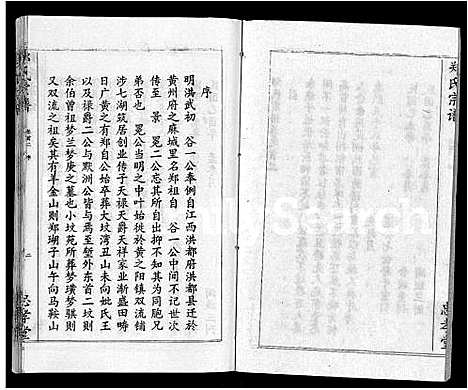 郑氏宗谱
忠孝堂
序
明洪武初　谷一公奉例自江西洪都府洪都县迁於
黄州府之麻城里名郑祖自　谷一公中间不记世次
传至　景　冕二公忘其所自出抑不知其为同胞兄
弟否也　冕公当明之中叶始徙於黄之阳镇双流铺
涉七湖筑居创业传子天禄天爵天祥家业渐盛田畴
日广黄之有郑自公始卒葬大坟湾丑山未向妣氏王
以及禄爵二公与默洲公皆与焉至堑外东首二坟则
余伯曾祖梦兰梦庚之墓也小坟苑所葬梦璜梦骐则
又双流之祖矣其有羊金山则郑瑚子山午向马鞍山
忠孝堂
Search